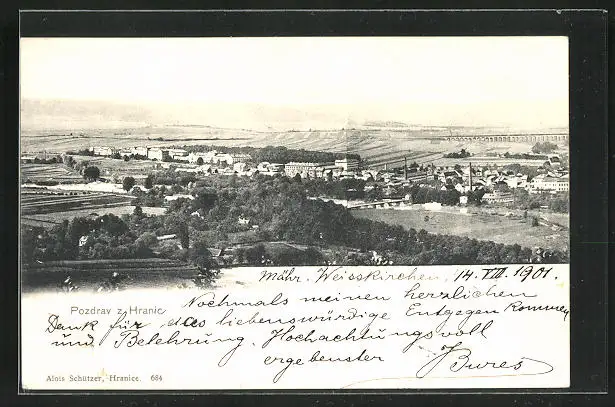 Mähr. Weisskirchen, 14.VII.1901.
Pozdrav z Hranic
Nochmals meinen herzlichen
Dank für das liebenswürdige Entgegenkommen
und Belehrung. Hochachtungsvoll
ergebenster J. Bures
Alois Schützer, Hranice. 684